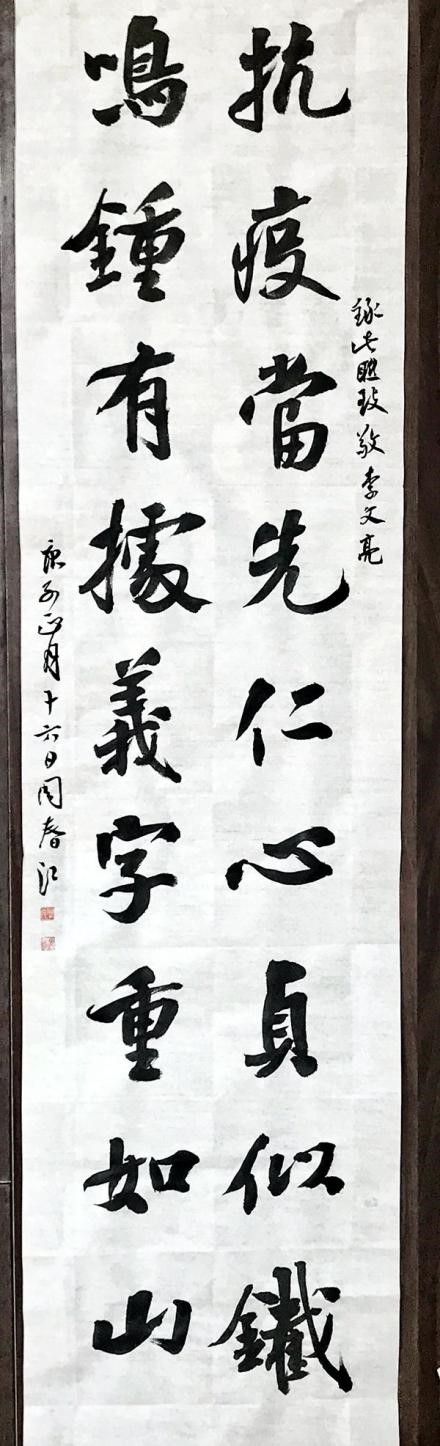 抗疫當先仁心貞似鐵
鳴鍾有據義字重如山
錄此聯致敬李文亮
庚子正月十六日周春江